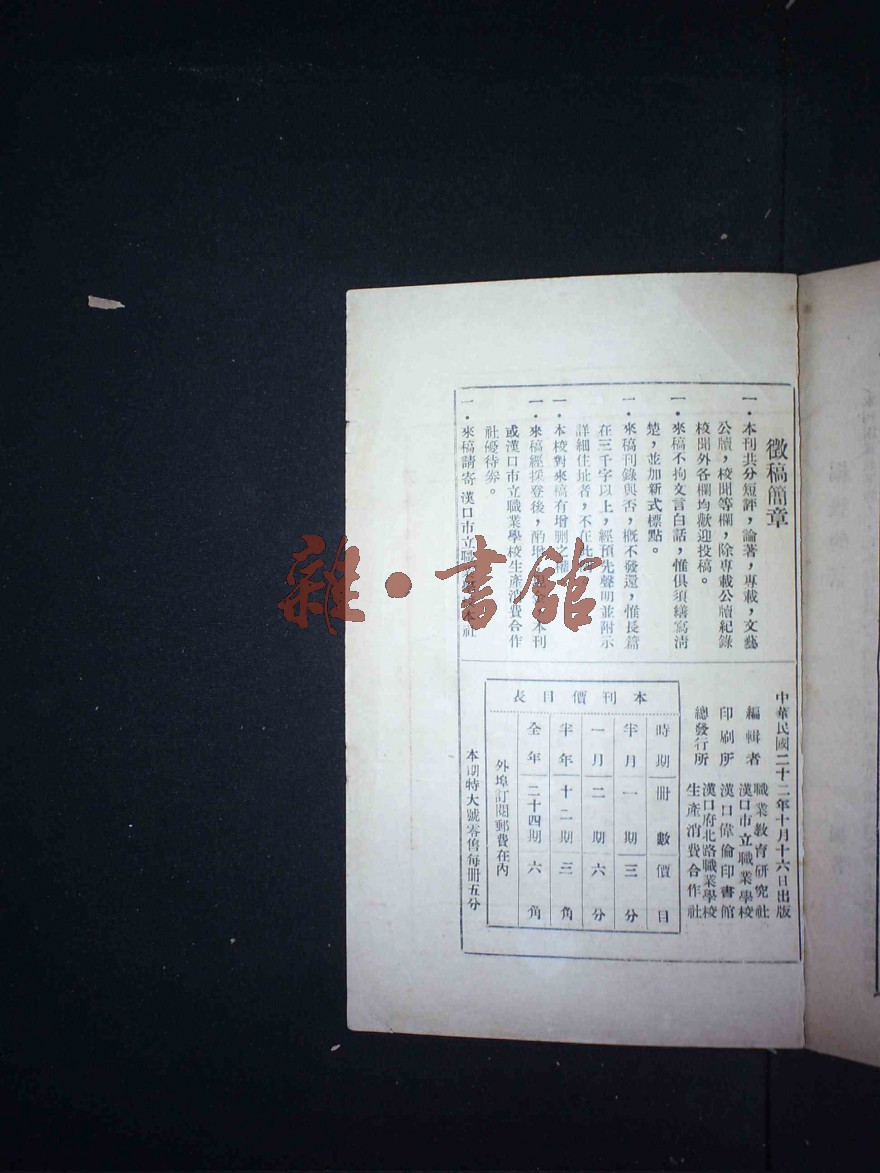 徵稿簡章
一・本刊共分短評，論著，專載，文藝
公牘，校聞等欄，除專載公牘紀錄
校聞外各欄均歡迎投稿。
一・來稿不拘文言白話，惟俱須繕寫清
楚，並加新式標點。
一・來稿刊錄與否，概不發還，惟長篇
在三千字以上，經預先聲明並附示
詳細住址者，不在此
一・本校對來稿有增刪之
一・來稿經採登後，酌增本刊
或漢口市立職業學校生產消費合作
社優待券。
一・來稿請寄漢口市立職本社
中華民國二十二年十月十六日出版
編輯者 職業教育研究社
漢口市立職業學校
印刷所 漢口偉倫印書館
總發行所 漢口府北路職業學校
生產消費合作社
本刊價目表
時期 冊數 價目
半月 一期 三分
一月 二期 六分
半年 十二期 三角
全年 二十四期 六角
外埠訂閱郵費在內
本期特大號零售每冊五分
雜・書館